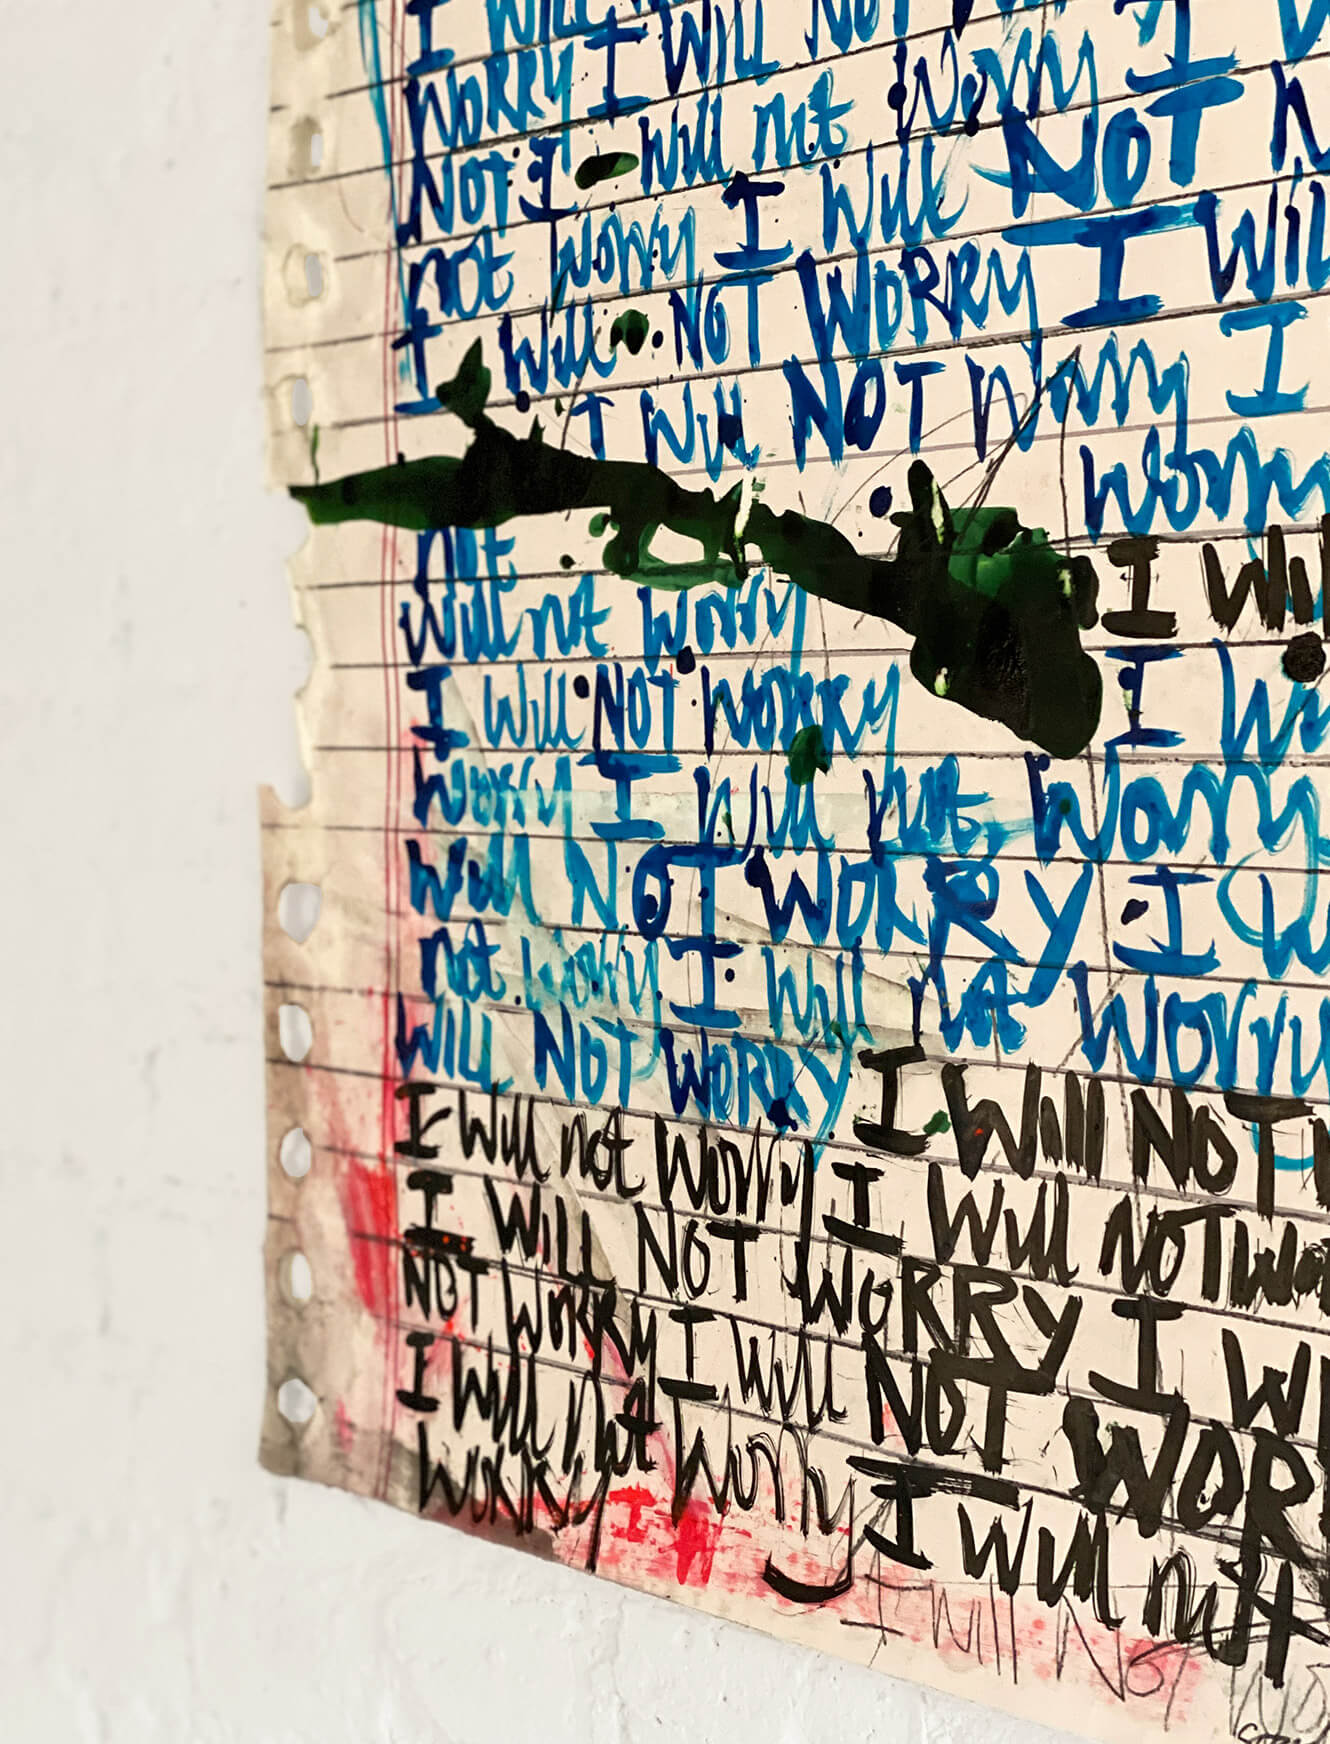 I WILL
WORRY I WILL NOT
NOT I will not worry I
not worry I will NOT
I will NOT WORRY I WILL
I will NOT worry I
worry
not I will
will not worry
I will NOT WORRY I
worry I will not worry
will NOT WORRY I
not worry I will not worry
WILL NOT WORRY I Will NOT
I will not worry I will NOT
I WILL NOT WORRY I
NOT WORRY I will NOT WOR
I will not worry I will not
worry
I will NOT